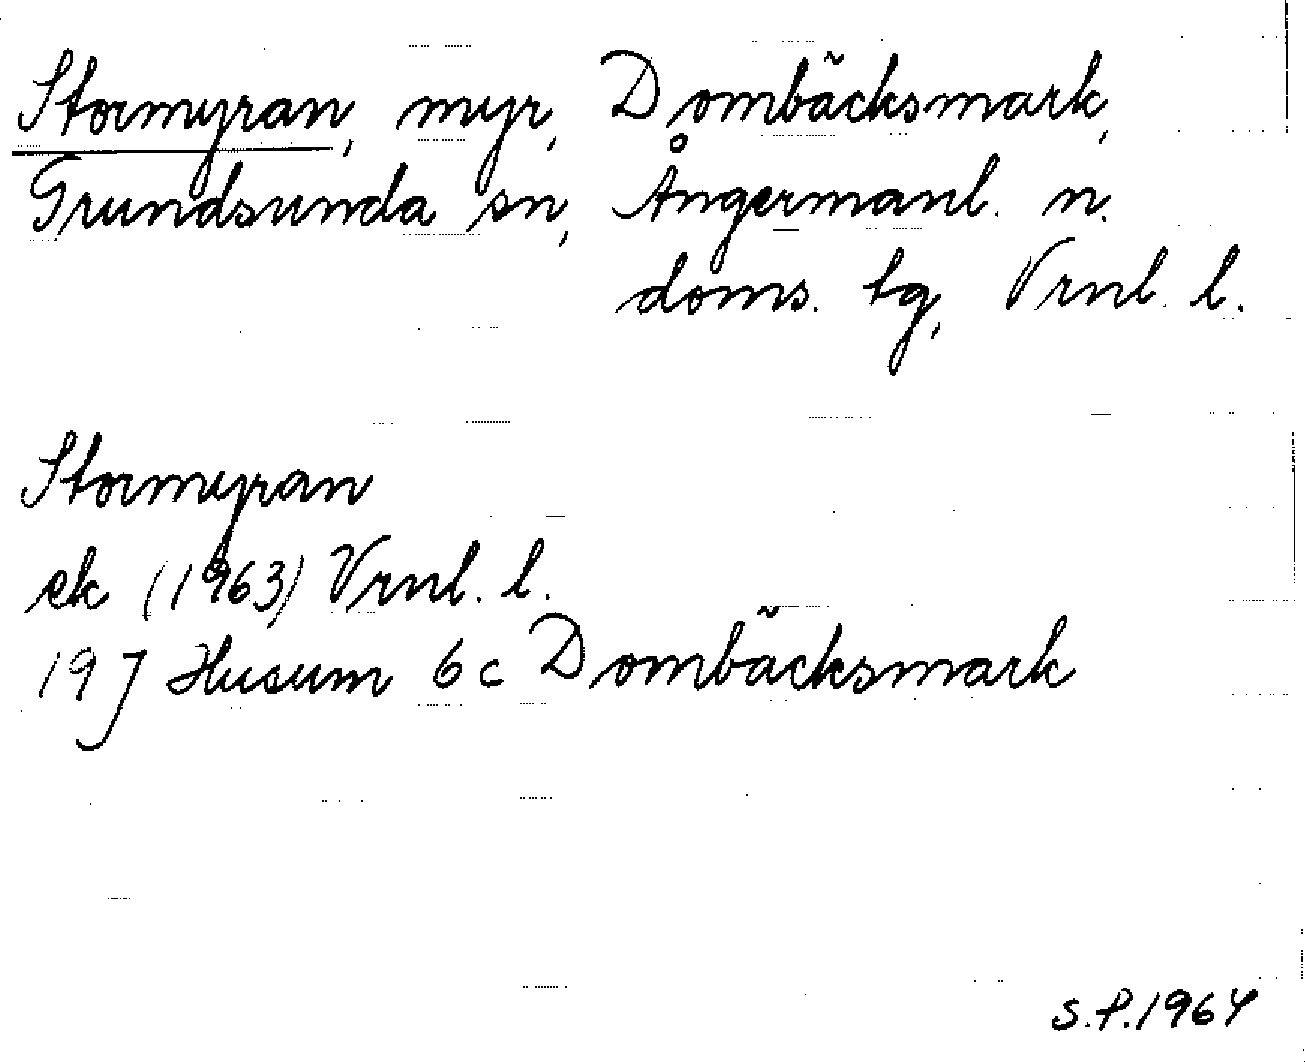 Stormyran, myr, Dombäcksmark,
Grundsunda sn, Ångermanl. n.
doms. tg, Vrnl. l.
Stormyran
ek (1963) Vrnl. l.
19 J Husum 6 c Dombäcksmark
S.P.1964